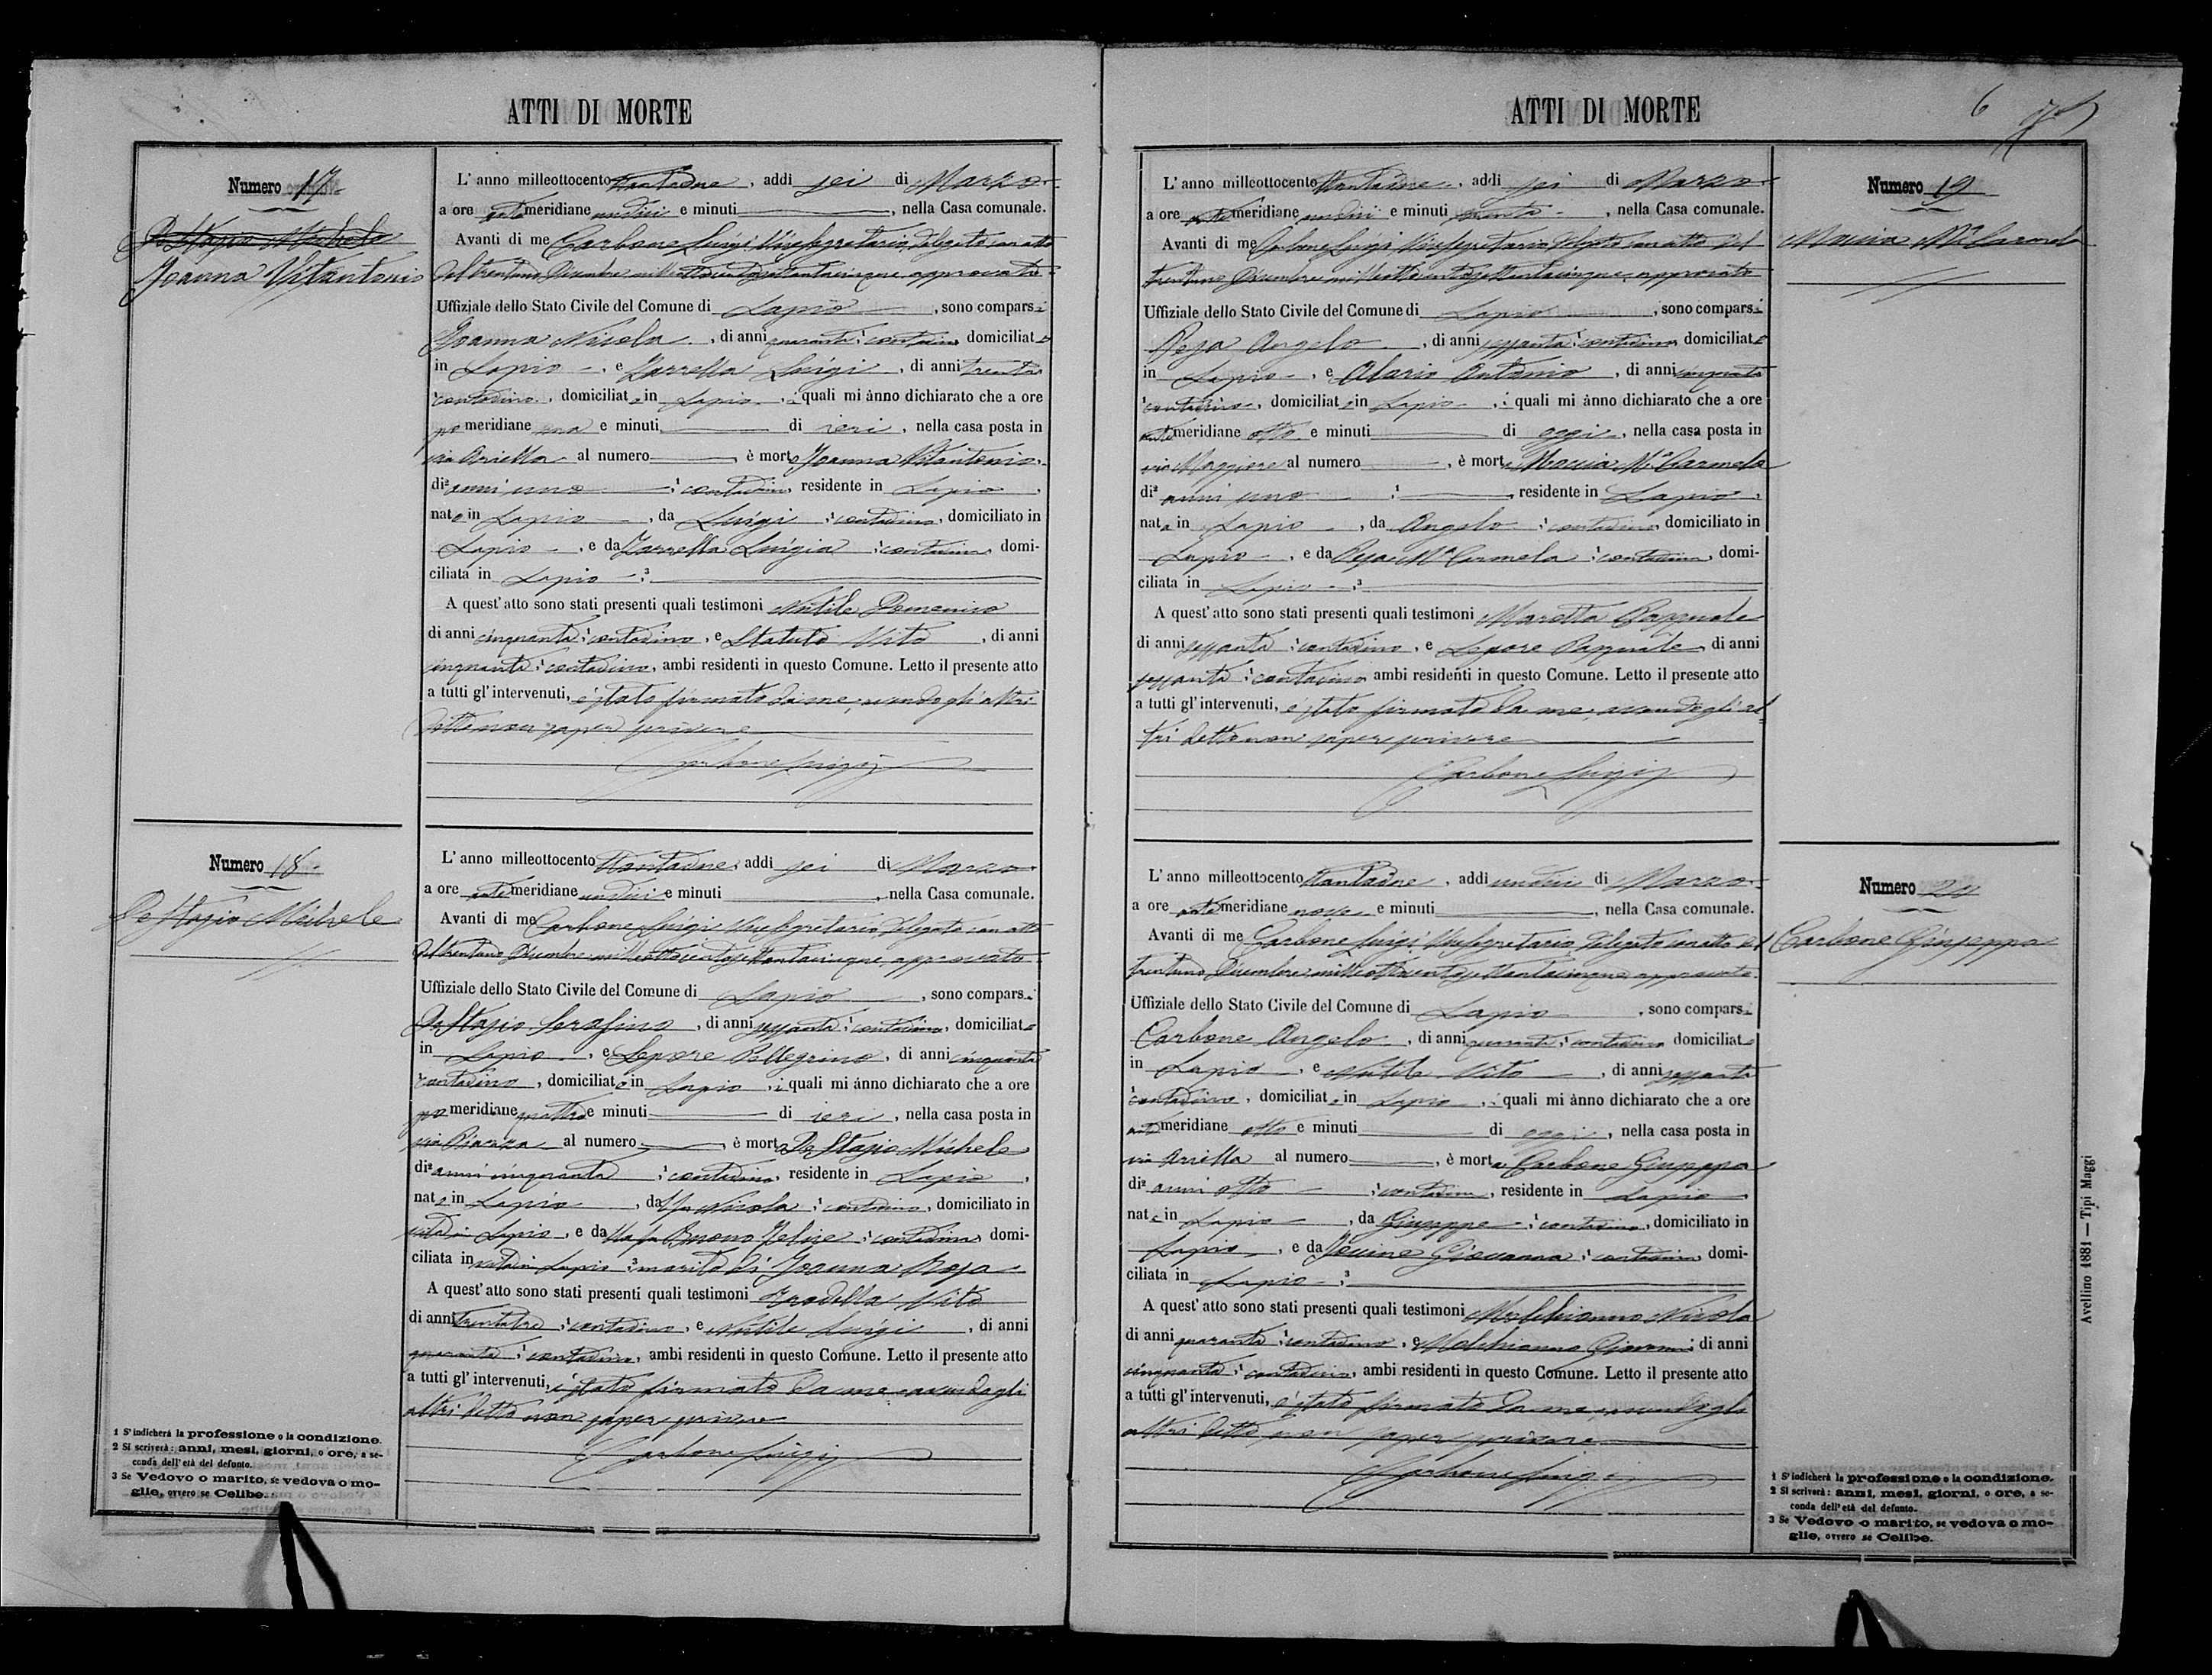 ATTI DI MORTE
Numero 17
De Stagio Michele
Joanna Vitantonio
L' anno milleottocento ottantadue, addì sei di Marzo
a ore antemeridiane undici e minuti , nella Casa comunale.
Avanti di me Carbone Luigi Vicesegretario, delegato con atto
del trentuno Dicembre milleottocentosettantacinque, approvato
Uffiziale dello Stato Civile del Comune di Lapio , sono comparsi
Joanna Nicola , di anni quaranta ¹ contadino domiciliato
in Lapio , e Zarrella Luigi , di anni trenta
¹ contadino, domiciliato in Lapio , i quali mi ànno dichiarato che a ore
pomeridiane una e minuti di ieri , nella casa posta in
via Ariella al numero , è morto Joanna Vitantonio
di² anni uno ¹ contadino, residente in Lapio ,
nato in Lapio , da Luigi ¹ contadino, domiciliato in
Lapio , e da Zarrella Luigia ¹ contadina, domi-
ciliata in Lapio ³
A quest' atto sono stati presenti quali testimoni Nutile Domenico
di anni cinquanta ¹ contadino, e Statuto Vito , di anni
cinquanta ¹ contadino, ambi residenti in questo Comune. Letto il presente atto
a tutti gl' intervenuti, è stato firmato da me, avendo gli altri
detto non saper scrivere
Carbone Luigi
Numero 18
De Stagio Michele
L' anno milleottocento ottantadue, addì sei di Marzo
a ore antemeridiane undici e minuti , nella Casa comunale.
Avanti di me Carbone Luigi Vicesegretario, delegato con atto
del trentuno Dicembre milleottocentosettantacinque, approvato
Uffiziale dello Stato Civile del Comune di Lapio , sono comparsi
De Stagio Serafino , di anni sessanta ¹ contadino, domiciliato
in Lapio , e Lepore Pellegrino, di anni cinquanta
¹ contadino , domiciliato in Lapio , i quali mi ànno dichiarato che a ore
pomeridiane quattro e minuti di ieri , nella casa posta in
via Pianza al numero , è morto De Stagio Michele
di² anni cinquanta ¹ contadino, residente in Lapio ,
nato in Lapio , da fu Nicola ¹ contadino, domiciliato in
vita in Lapio , e da fu Buono Felice ¹ contadina domi-
ciliata in vita in Lapio ³ marito di Joanna Rosa
A quest' atto sono stati presenti quali testimoni Vito
di anni trentatre ¹ contadino , e Nutile Luigi , di anni
quaranta ¹ contadino, ambi residenti in questo Comune. Letto il presente atto
a tutti gl' intervenuti, è stato firmato da me avendo gli
altri detto non saper scrivere
Carbone Luigi
1 S' indicherà la professione o la condizione.
2 Si scriverà: anni, mesi, giorni, o ore, a se-
conda dell' età del defunto.
3 Se Vedovo o marito, se vedova o mo-
glie, ovvero se Celibe.
ATTI DI MORTE
6
Numero 19
Maccia Mª Carmela
L' anno milleottocento ottantadue , addì sei di Marzo
a ore antemeridiane undici e minuti trenta , nella Casa comunale.
Avanti di me Carbone Luigi Vicesegretario delegato con atto del
trentuno Dicembre milleottocentosettantacinque, approvato
Uffiziale dello Stato Civile del Comune di Lapio , sono comparsi
Pesa Angelo , di anni sessanta ¹ contadino domiciliato
in Lapio , e Olario Antonio , di anni cinquanta
¹ contadino, domiciliato in Lapio , i quali mi ànno dichiarato che a ore
antemeridiane otto e minuti di oggi , nella casa posta in
via Maggiore al numero , è morta Maccia Mª Carmela
di² anni uno ¹ , residente in Lapio ,
nata in Lapio , da Angelo ¹ contadino, domiciliato in
Lapio , e da Pesa Mª Carmela ¹ contadina, domi-
ciliata in Lapio ³
A quest' atto sono stati presenti quali testimoni Marotta Pasquale
di anni sessanta ¹ contadino , e Lepore Pasquale , di anni
sessanta ¹ contadino ambi residenti in questo Comune. Letto il presente atto
a tutti gl' intervenuti, è stato firmato da me, avendo gli al
tri detto non saper scrivere
Carbone Luigi
Numero 20
Carbone Giuseppa
L' anno milleottocento ottantadue , addì undici di Marzo
a ore antemeridiane nove e minuti , nella Casa comunale.
Avanti di me Carbone Luigi Vicesegretario delegato con atto del
trentuno Dicembre milleottocentosettantacinque approvato
Uffiziale dello Stato Civile del Comune di Lapio , sono comparsi
Carbone Angelo , di anni quaranta ¹ contadino domiciliato
in Lapio , e Nutile Vito , di anni sessanta
¹ contadino , domiciliato in Lapio , i quali mi ànno dichiarato che a ore
antemeridiane otto e minuti di oggi , nella casa posta in
via Ariella al numero , è morta Carbone Giuseppa
di² anni otto ¹ contadina , residente in Lapio
nata in Lapio , da Giuseppe ¹ contadino, domiciliato in
Lapio , e da Iovine Giovanna ¹ contadina, domi-
ciliata in Lapio ³
A quest' atto sono stati presenti quali testimoni Melchionno Nicola
di anni quaranta ¹ contadino , e Melchionno Giovanni di anni
cinquanta ¹ contadino, ambi residenti in questo Comune. Letto il presente atto
a tutti gl' intervenuti, è stato firmato da me, avendo gli
altri detto non saper scrivere
Carbone Luigi
1 S' indicherà la professione o la condizione.
2 Si scriverà: anni, mesi, giorni, o ore, a se-
conda dell' età del defunto.
3 Se Vedovo o marito, se vedova o mo-
glie, ovvero se Celibe.
Avellino 1881 — Tipi Maggi